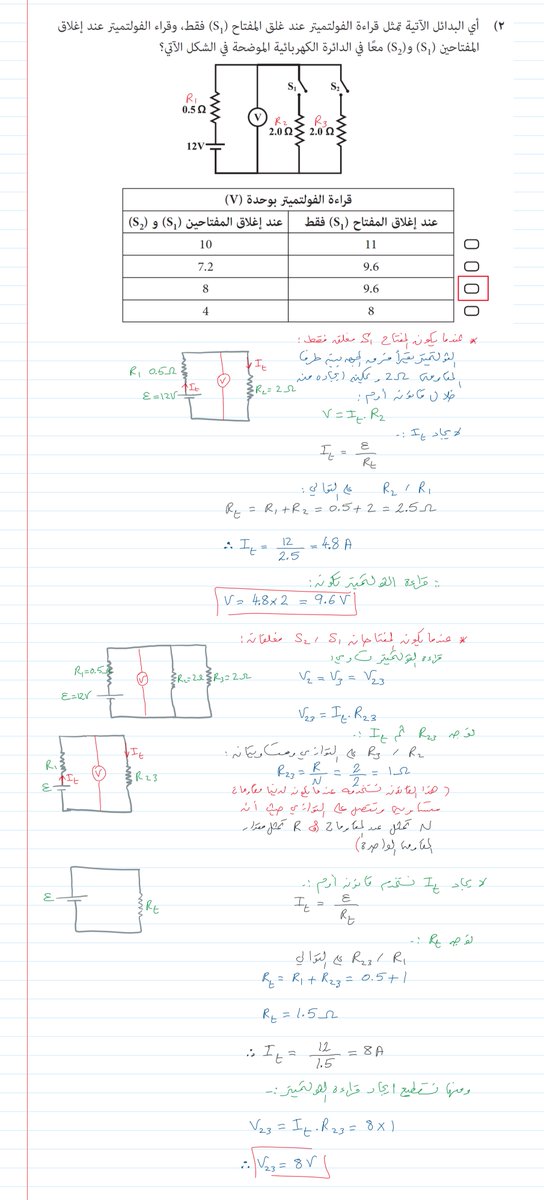 ٢) أي البدائل الآتية تمثل قراءة الفولتميتر عند غلق المفتاح (S₁) فقط، وقراء الفولتميتر عند إغلاق
المفتاحين (S₁) و(S₂) معًا في الدائرة الكهربائية الموضحة في الشكل الآتي؟
S₁ S₂
R₁
0.5 Ω
V
R₂
2.0 Ω
R₃
2.0 Ω
12V
قراءة الفولتميتر بوحدة (V)
عند إغلاق المفتاح (S₁) فقط
عند إغلاق المفتاحين (S₁) و (S₂)
11 10
9.6 7.2
9.6 8
8 4
* عندما يكون المفتاح S₁ مغلق فقط:
الفولتميتر يقرأ فرق الجهد بين طرفي
المقاومة 2Ω ويمكن إيجاده من
خلال قانون أوم:
V = It . R₂
R₁ 0.5Ω
It
V
It
R₂ = 2Ω
ε = 12V
لإيجاد It :-
It = ε / Rt
R₁ / R₂ على التوالي:
Rt = R₁ + R₂ = 0.5 + 2 = 2.5 Ω
∴ It = 12 / 2.5 = 4.8 A
∴ قراءة الفولتميتر تكون:
V = 4.8 × 2 = 9.6 V
* عندما يكون المفتاحان S₁ / S₂ مغلقان:
قراءة الفولتميتر تساوي:
R₁=0.5Ω
V
R₂=2Ω
R₃=2Ω
ε=12V
V₂ = V₃ = V₂₃
V₂₃ = It . R₂₃
نوجد R₂₃ ثم It :-
R₂ / R₃ على التوازي ومتساويتان:
R₂₃ = R / N = 2 / 2 = 1Ω
R₁
It
V
It
R₂₃
ε
(هذا القانون نستخدمه عندما يكون لدينا مقاومات
متساوية وتتصل على التوازي حيث أن
N تمثل عدد المقاومات و R تمثل مقدار
المقاومة الواحدة)
ε
Rt
لإيجاد It نستخدم قانون أوم:-
It = ε / Rt
نوجد Rt :-
R₁ / R₂₃ على التوالي
Rt = R₁ + R₂₃ = 0.5 + 1
Rt = 1.5 Ω
∴ It = 12 / 1.5 = 8 A
ومنها نستطيع إيجاد قراءة الفولتميتر:-
V₂₃ = It . R₂₃ = 8 × 1
∴ V₂₃ = 8 V